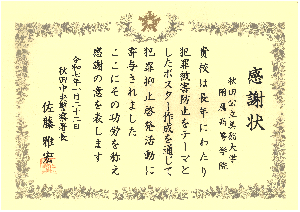 感謝状
秋田公立美術大学
附属高等学院
貴校は長年にわたり
犯罪被害防止をテーマと
したポスター作成を通じて
犯罪抑止啓発活動に
寄与されました
ここにその功労を称え
感謝の意を表します
令和七年一月二十二日
秋田中央警察署長
佐藤雅宏